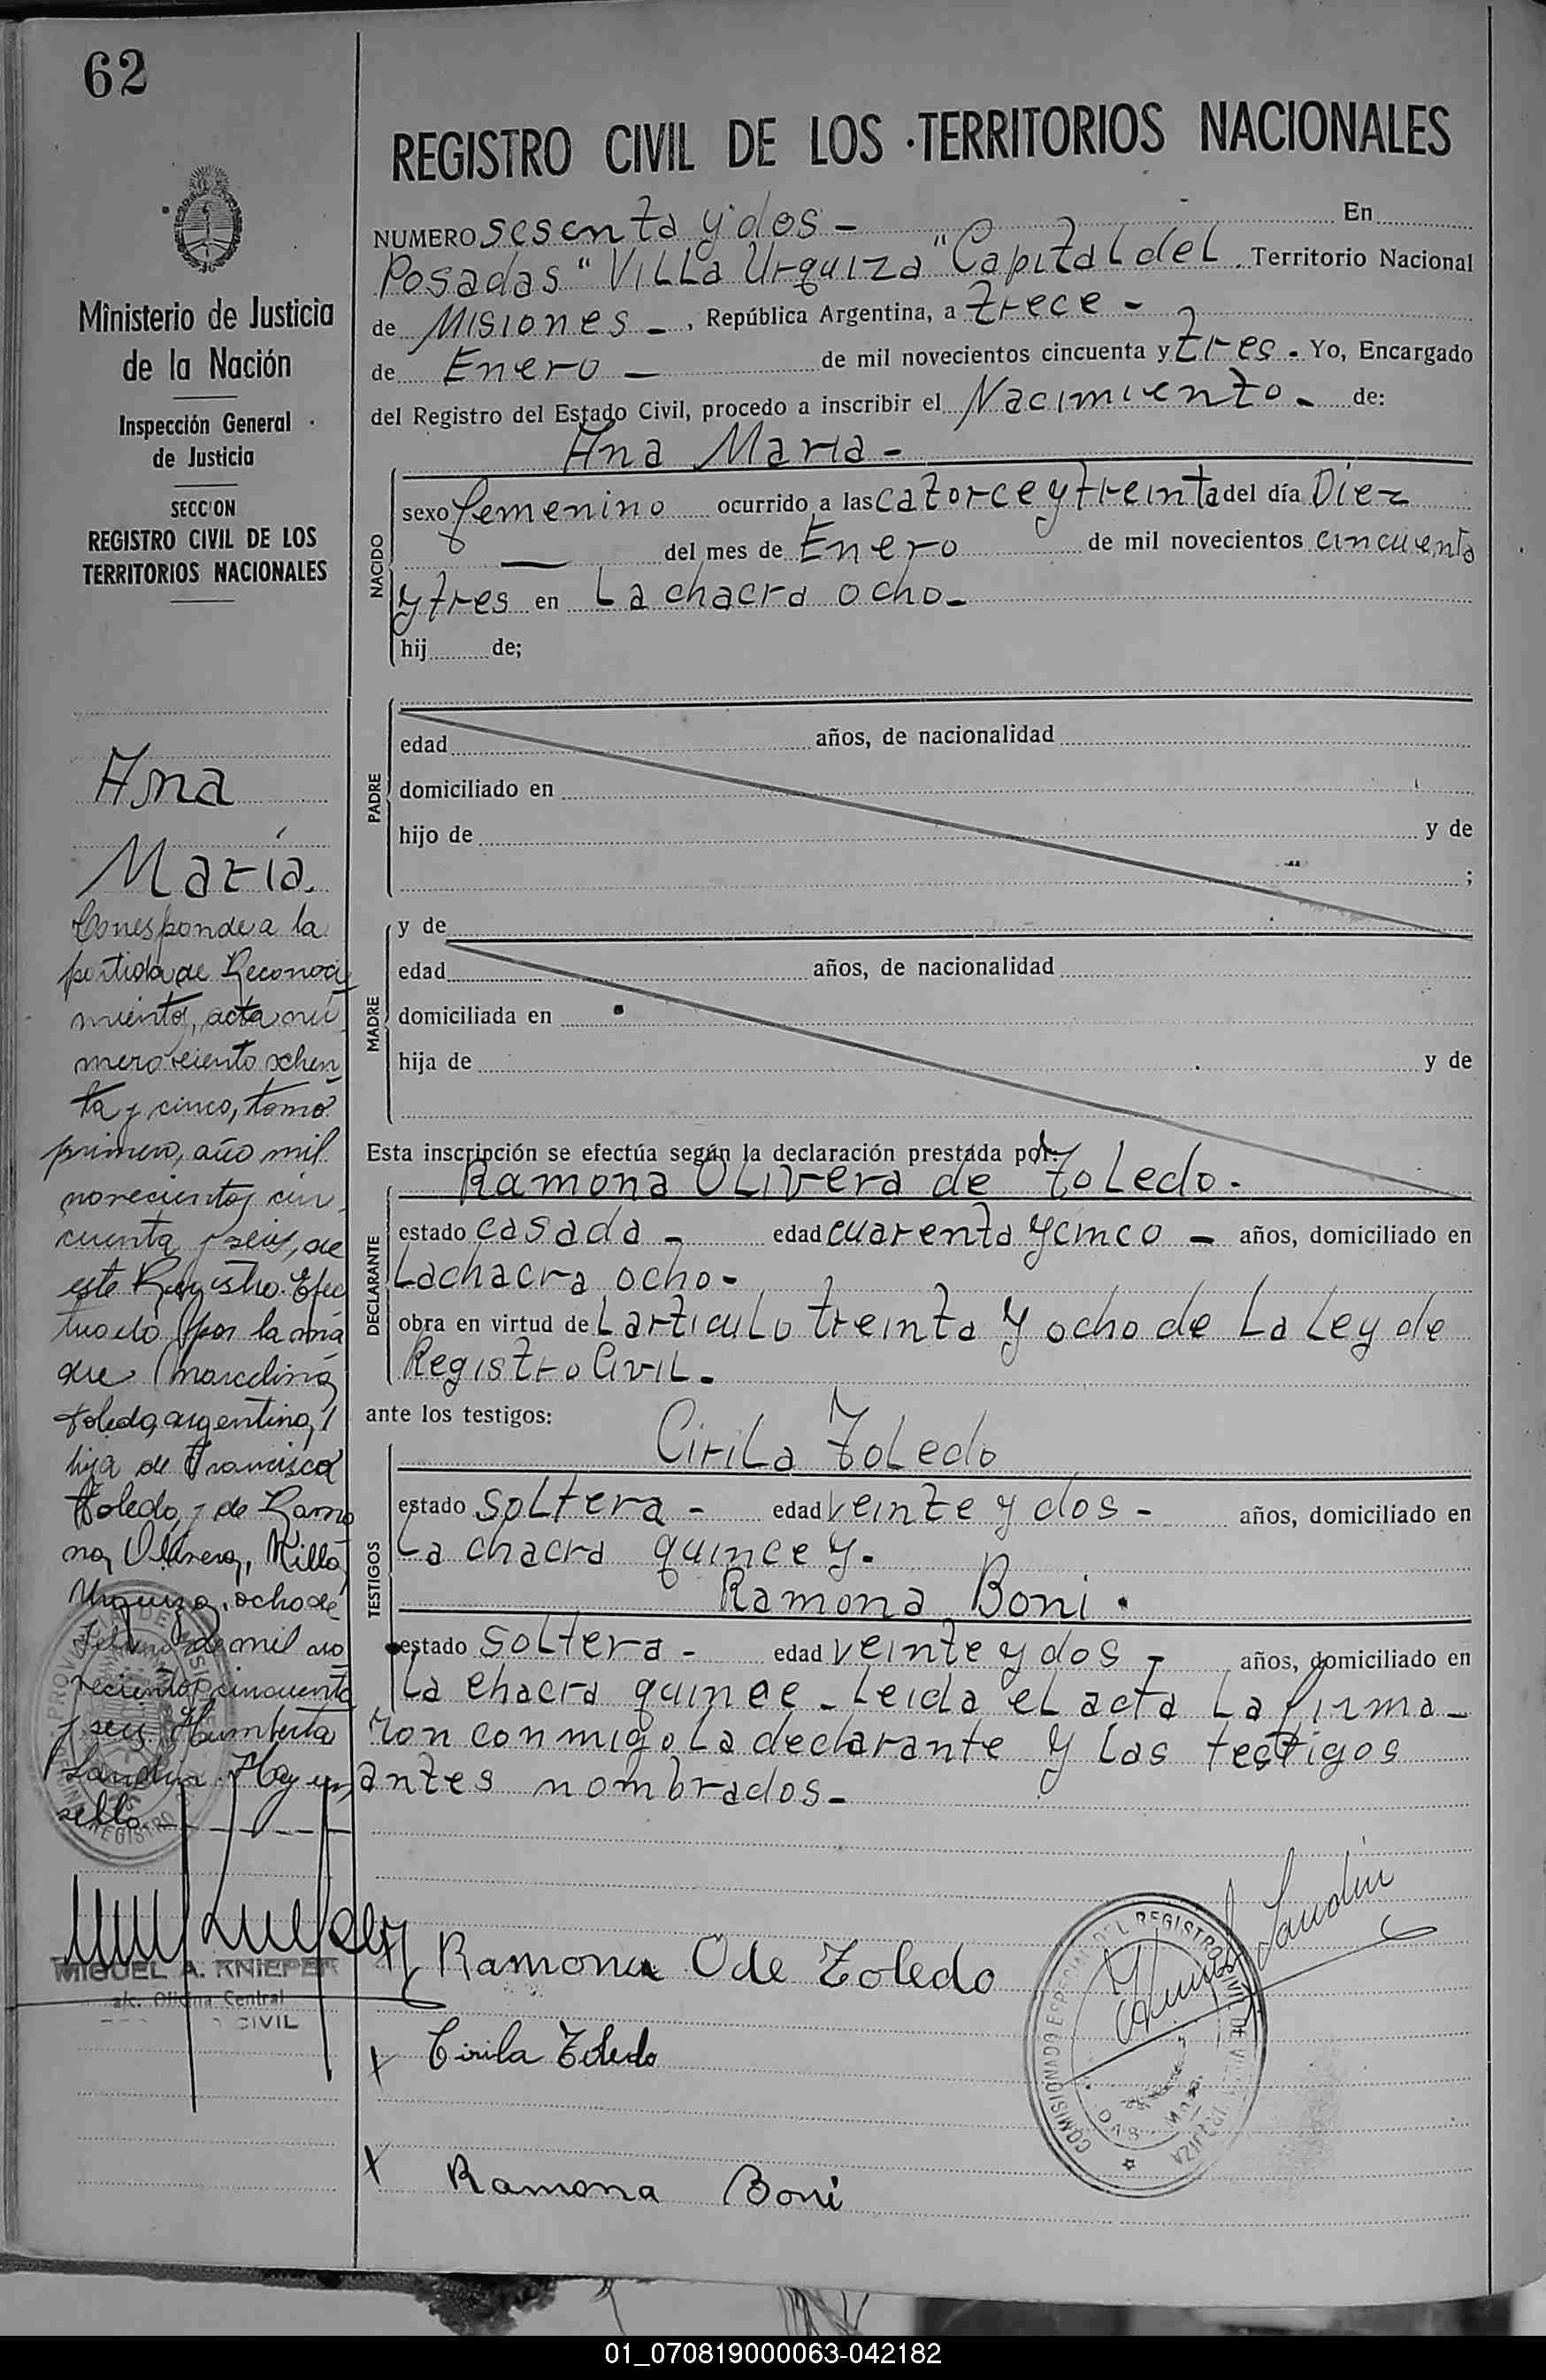 62
REGISTRO CIVIL DE LOS TERRITORIOS NACIONALES
NUMERO sesenta y dos - En
Posadas "Villa Urquiza" Capital del Territorio Nacional
de Misiones -, República Argentina, a trece -
de Enero - de mil novecientos cincuenta y tres. Yo, Encargado
del Registro del Estado Civil, procedo a inscribir el Nacimiento. de:
Ana Maria -
NACIDO
sexo femenino ocurrido a las catorce y treinta del día Diez
— del mes de Enero de mil novecientos cincuenta
y tres en La chacra ocho-
hij de;
PADRE
edad años, de nacionalidad
domiciliado en
hijo de y de
;
MADRE
y de
edad años, de nacionalidad
domiciliada en
hija de y de
Esta inscripción se efectúa según la declaración prestada por:
Ramona Olivera de Toledo.
DECLARANTE
estado casada - edad cuarenta y cinco - años, domiciliado en
La chacra ocho-
obra en virtud del articulo treinta y ocho de La Ley de
Registro Civil.
ante los testigos:
Cirila Toledo
TESTIGOS
estado soltera - edad veinte y dos - años, domiciliado en
La chacra quince y.
Ramona Boni.
estado soltera - edad veinte y dos - años, domiciliado en
La chacra quince - Leida el acta La firma-
ron conmigo la declarante y las testigos
antes nombrados-
Ramona O de Toledo
Cirila Toledo
Ramona Boni
Ministerio de Justicia
de la Nación
Inspección General
de Justicia
SECCION
REGISTRO CIVIL DE LOS
TERRITORIOS NACIONALES
Ana
María.
Corresponde a la
partida de Reconoci
miento, acta nú
mero ciento ochen
ta y cinco, tomo
primero, año mil
novecientos cin
cuenta y seis, de
este Registro. Efec
tuado por la ma
dre Marcelina
Toledo, argentina,
hija de Francisco
Toledo, y de Ramo
na Olivera, Villa
Urquiza, ocho de
Febrero de mil no
vecientos cincuenta
y seis Humberto
Landin. Hay un
sello.
MIGUEL A. KNIEPER
a/c. Oficina Central
CIVIL
COMISIONADO ESPECIAL DEL REGISTRO CIVIL DE VILLA URQUIZA
01_070819000063-042182